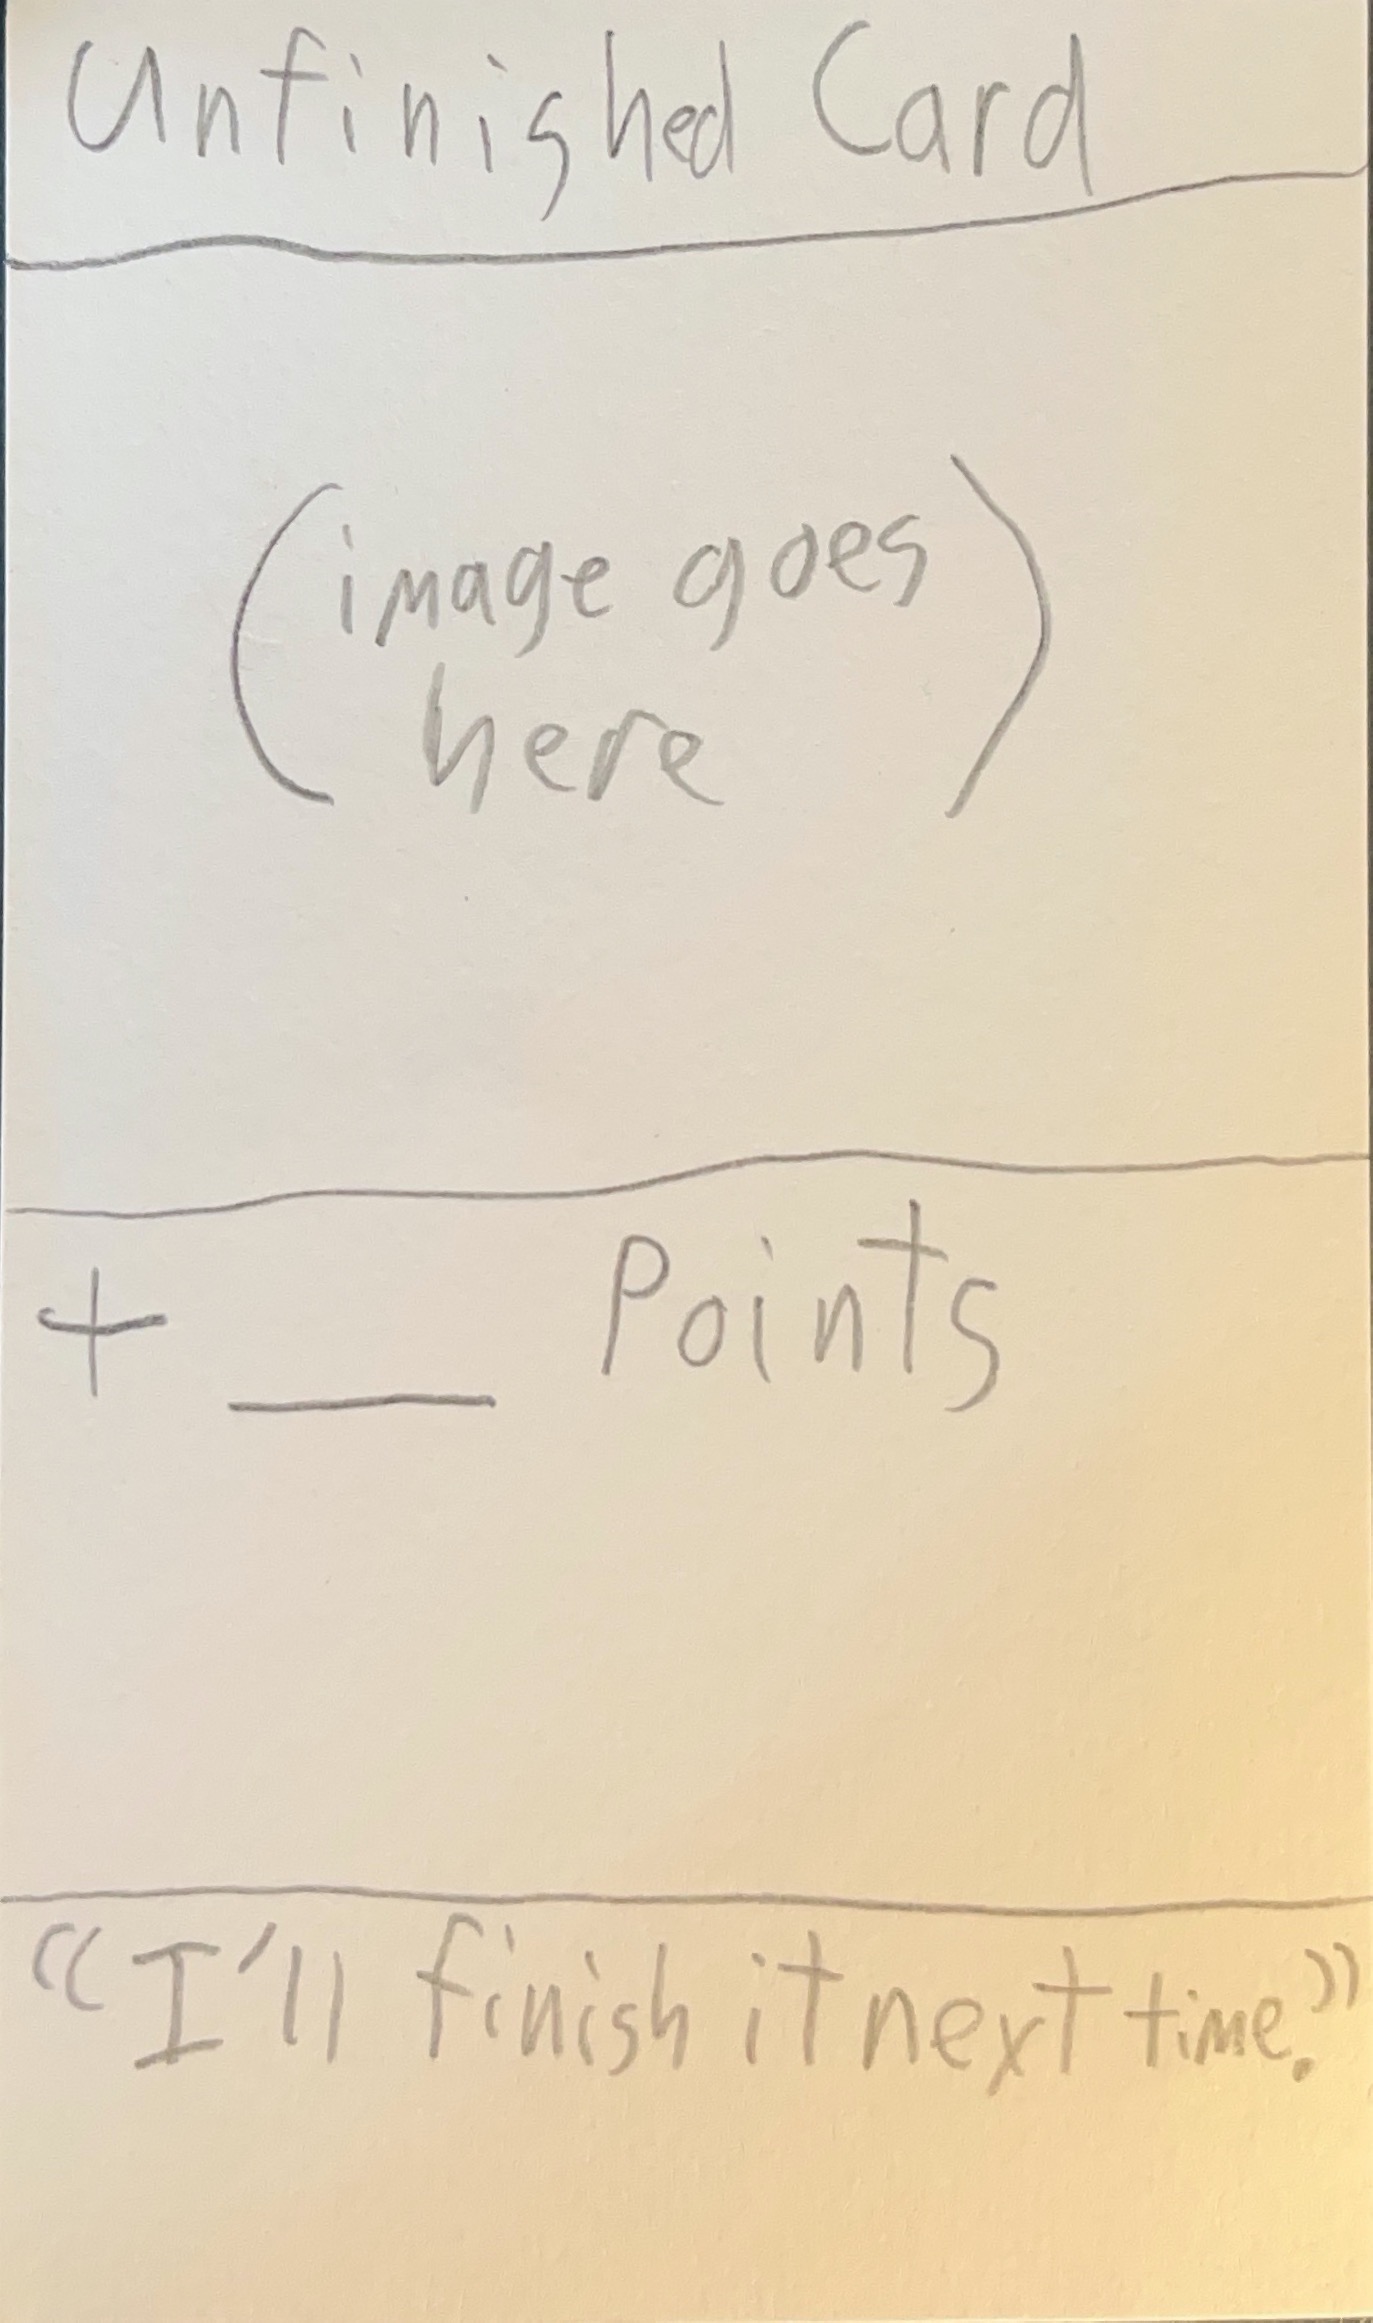 Unfinished Card
(image goes
here)
+ ___ Points
"I'll finish it next time."